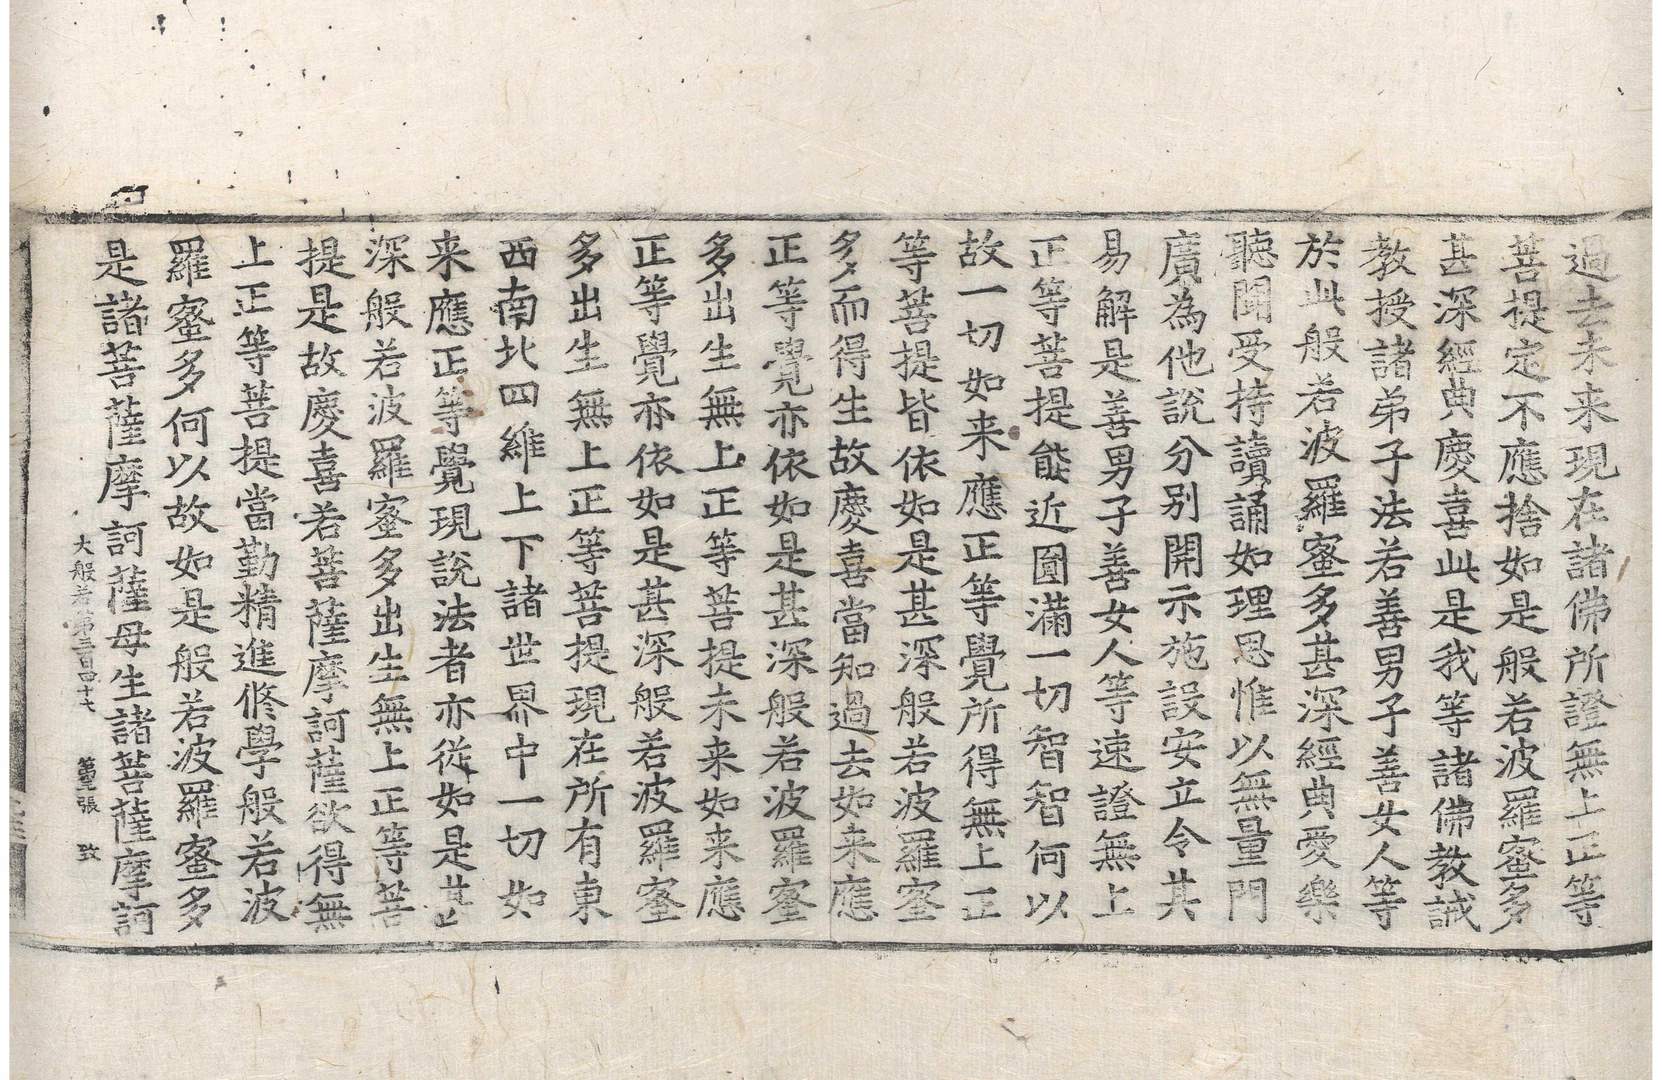 過去未来現在諸佛所證無上正等
菩提定不應捨如是般若波羅蜜多
甚深經典慶喜此是我等諸佛教誡
教授諸弟子法若善男子善女人等
於此般若波羅蜜多甚深經典愛樂
聽聞受持讀誦如理思惟以無量門
廣為他說分別開示施設安立令其
易解是善男子善女人等速證無上
正等菩提能近圓滿一切智智何以
故一切如来應正等覺所得無上正
等菩提皆依如是甚深般若波羅蜜
多而得生故慶喜當知過去如来應
正等覺亦依如是甚深般若波羅蜜
多出生無上正等菩提未来如来應
正等覺亦依如是甚深般若波羅蜜
多出生無上正等菩提現在所有東
西南北四維上下諸世界中一切如
来應正等覺現說法者亦從如是甚
深般若波羅蜜多出生無上正等菩
提是故慶喜若菩薩摩訶薩欲得無
上正等菩提當勤精進修學般若波
羅蜜多何以故如是般若波羅蜜多
是諸菩薩摩訶薩母生諸菩薩摩訶
大般若第三百四十七 張 致